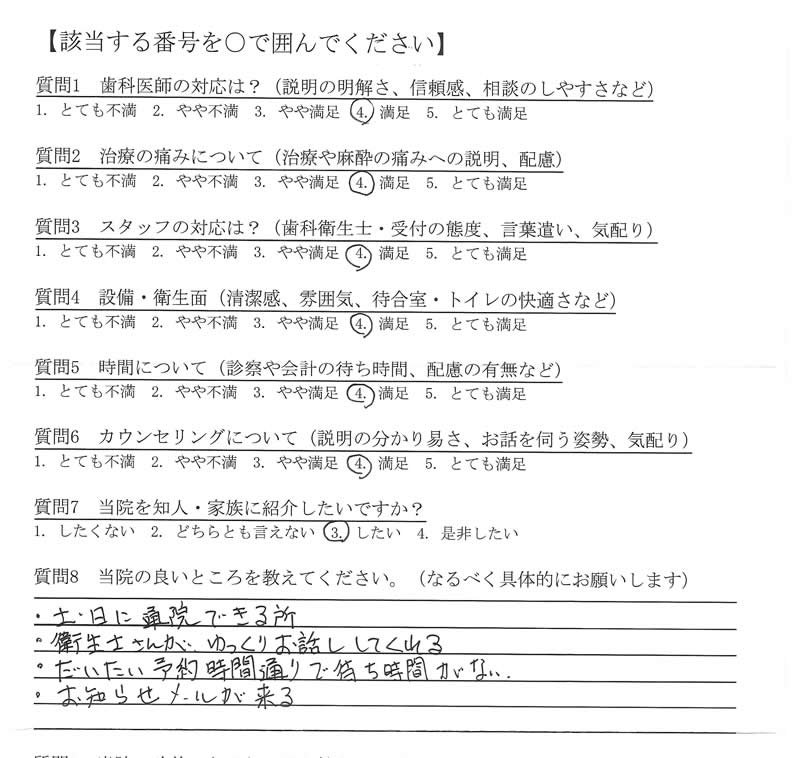 【該当する番号を○で囲んでください】
質問1 歯科医師の対応は?(説明の明解さ、信頼感、相談のしやすさなど)
1. とても不満 2. やや不満 3. やや満足 4. 満足 5. とても満足
質問2 治療の痛みについて(治療や麻酔の痛みへの説明、配慮)
1. とても不満 2. やや不満 3. やや満足 4. 満足 5. とても満足
質問3 スタッフの対応は?(歯科衛生士・受付の態度、言葉遣い、気配り)
1. とても不満 2. やや不満 3. やや満足 4. 満足 5. とても満足
質問4 設備・衛生面(清潔感、雰囲気、待合室・トイレの快適さなど)
1. とても不満 2. やや不満 3. やや満足 4. 満足 5. とても満足
質問5 時間について(診察や会計の待ち時間、配慮の有無など)
1. とても不満 2. やや不満 3. やや満足 4. 満足 5. とても満足
質問6 カウンセリングについて(説明の分かり易さ、お話を伺う姿勢、気配り)
1. とても不満 2. やや不満 3. やや満足 4. 満足 5. とても満足
質問7 当院を知人・家族に紹介したいですか?
1. したくない 2. どちらとも言えない 3. したい 4. 是非したい
質問8 当院の良いところを教えてください。(なるべく具体的にお願いします)
・土・日に通院できる所
・衛生士さんが、ゆっくりお話ししてくれる
・だいたい予約時間通りで待ち時間がない.
・お知らせメールが来る